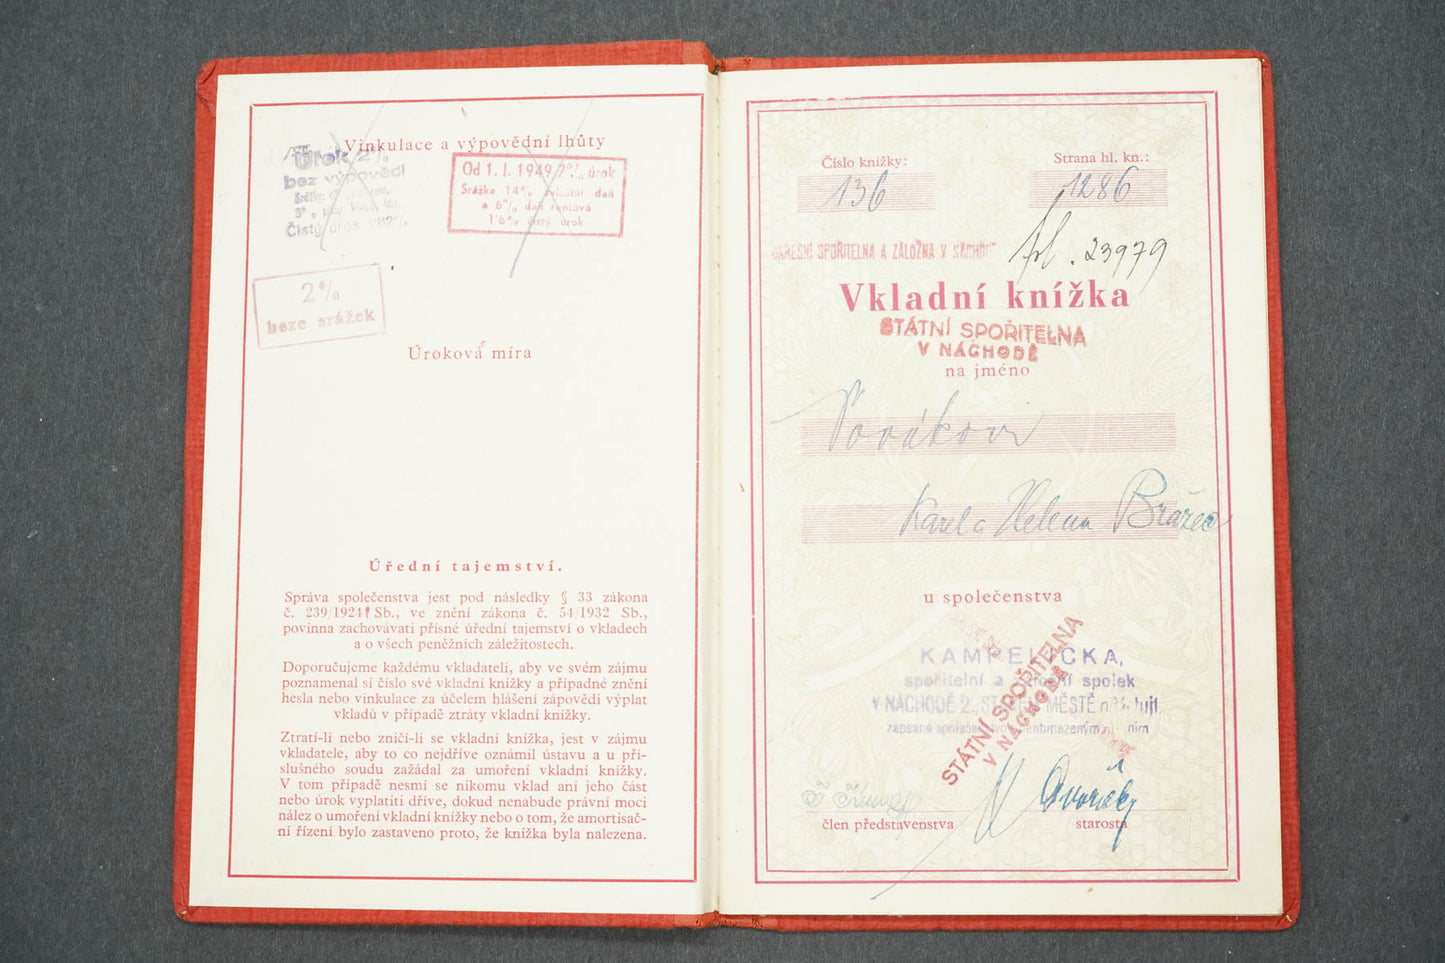 Vinkulace a výpovědní lhůty
Úrok 2%
bez výpovědi
Čistý úrok
Od 1. I. 1949 2% úrok
Srážka 14% zvláštní daň
a 6% daň rentová
1'6% čistý úrok
2%
beze srážek
Úroková míra
Úřední tajemství.
Správa společenstva jest pod následky § 33 zákona
č. 239/1924 Sb., ve znění zákona č. 54/1932 Sb.,
povinna zachovávati přísné úřední tajemství o vkladech
a o všech peněžních záležitostech.
Doporučujeme každému vkladateli, aby ve svém zájmu
poznamenal si číslo své vkladní knížky a případné znění
hesla nebo vinkulace za účelem hlášení zápovědi výplat
vkladů v případě ztráty vkladní knížky.
Ztratí-li nebo zničí-li se vkladní knížka, jest v zájmu
vkladatele, aby to co nejdříve oznámil ústavu a u pří-
slušného soudu zažádal za umoření vkladní knížky.
V tom případě nesmí se nikomu vklad ani jeho část
nebo úrok vyplatiti dříve, dokud nenabude právní moci
nález o umoření vkladní knížky nebo o tom, že amortisač-
ní řízení bylo zastaveno proto, že knížka byla nalezena.
Číslo knížky:
136
Strana hl. kn.:
1286
OKRESNÍ SPOŘITELNA A ZÁLOŽNA V NÁCHODĚ
23979
Vkladní knížka
STÁTNÍ SPOŘITELNA
V NÁCHODĚ
na jméno
Novákovi
Karel a Helena Brážec
u společenstva
KAMPELIČKA,
spořitelní a záložní spolek
V NÁCHODĚ 2., STARÉ MĚSTĚ n/Metují,
STÁTNÍ SPOŘITELNA
V NÁCHODĚ
Dvořáký
člen představenstva
starosta